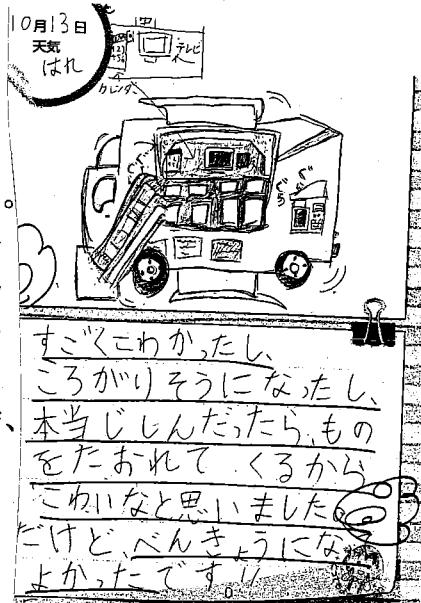 10月13日
天気
はれ
テレビ
カレンダー
すごくこわかったし、
ころがりそうになったし、
本当じしんだったら、もの
をたおれてくるから
こわいなと思いました。
だけど、べんきょうにな
よかったです!!